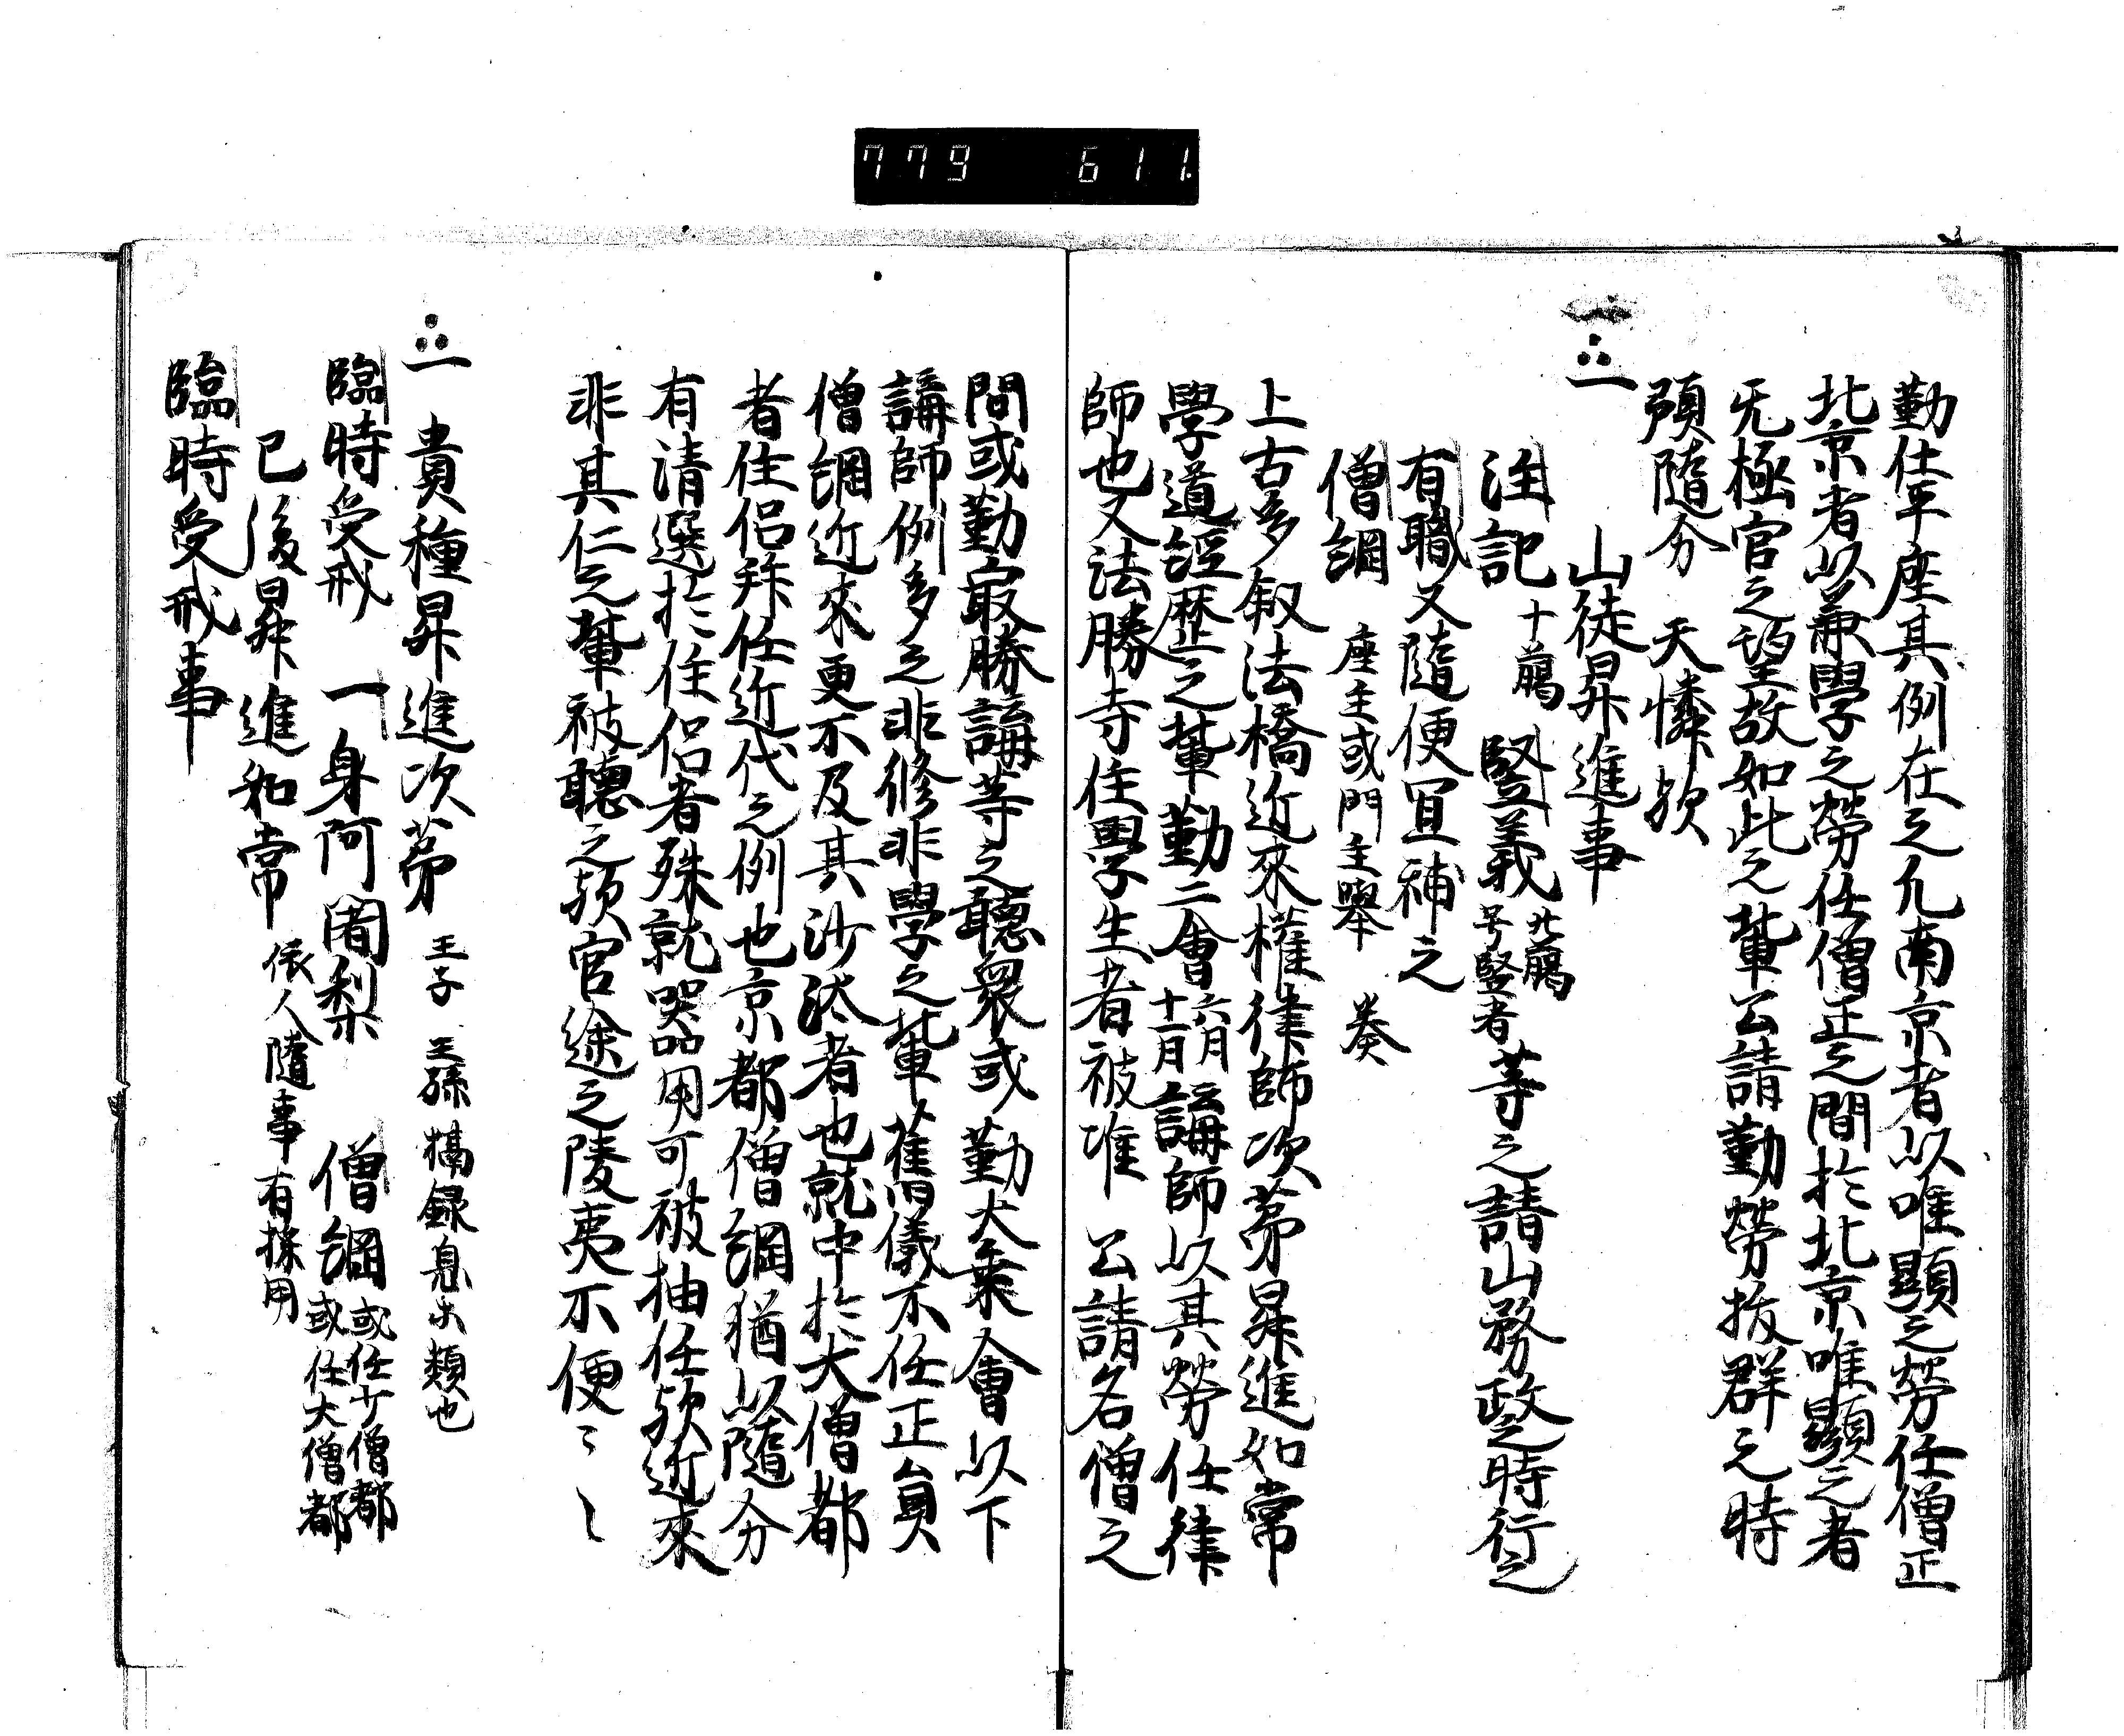 779 611.
勤仕平座其例在之凡南京者以唯顕之勞任僧正
北京者以兼學之勞任僧正之間於北京唯顕之者
无極官之望故如此之輩公請勤勞抜群之時
預随分 天憐歟
一 山徒昇進事
注記 十﨟 竪義 廿﨟 号竪者 等之請山務政之時行之
有職又随便冝補之
僧綱 座主或門主舉 奏
上古多叙法橋近來權律師次苐昇進如常
學道経歴之輩勤二會 六月 十一月 講師以其勞任律
師也又法勝寺住學生者被准 公請名僧之
間或勤冣勝講等之聽衆或勤大乗會以下
講師例多之非修非學之輩舊儀不任正員
僧綱近來更不及其沙汰者也就中於大僧都
者住侶拜任近代之例也京都僧綱猶以随分
有清選於住侶者殊就器用可被抽任歟近來
非其仁之輩被聽之頗官途之陵夷不便〻〻
一 貴種昇進次苐 王子 王孫 摂録息等類也
臨時受戒 一身阿闍梨 僧綱 或任少僧都 或任大僧都
已後昇進如常 依人随事有採用
臨時受戒事